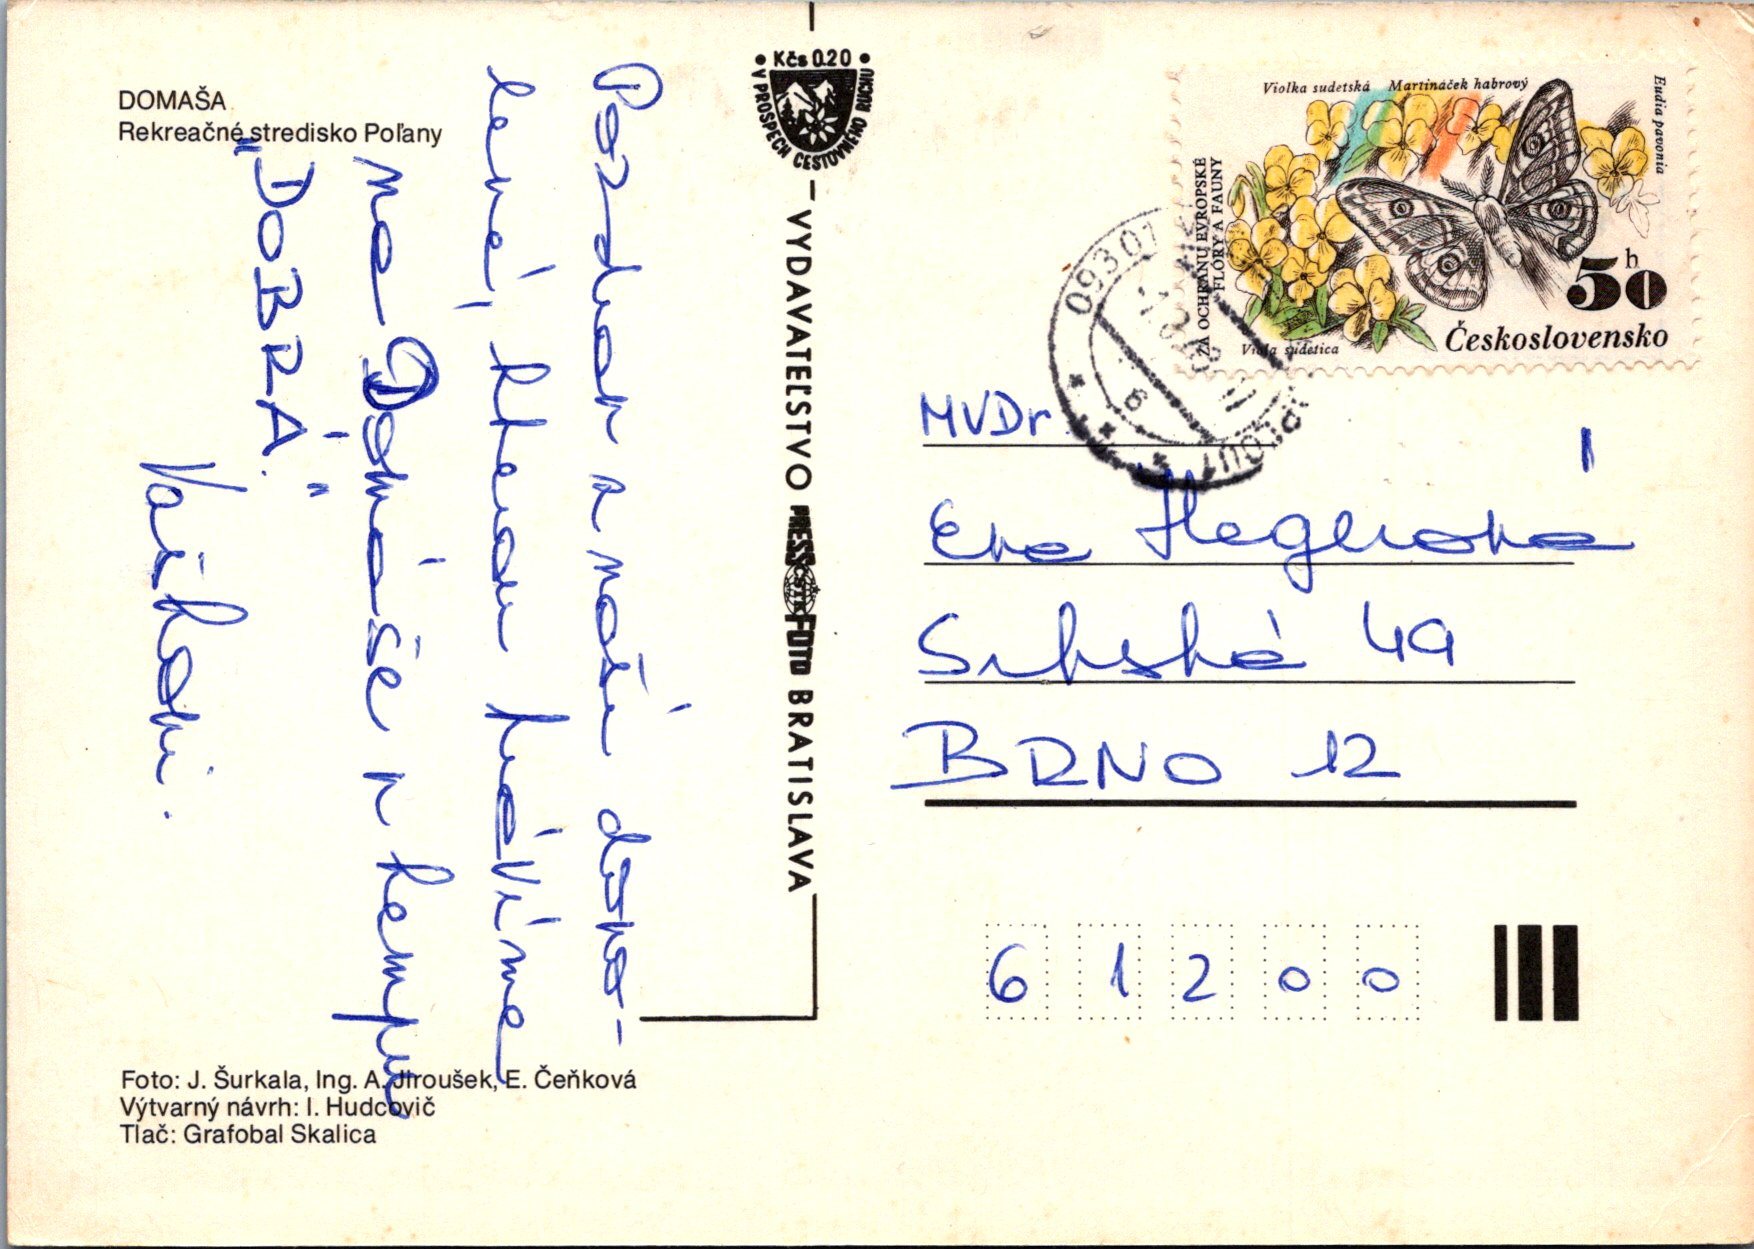 DOMAŠA
Rekreačné stredisko Poľany
Pozdrav z naší dovo-
lené, kterou trávíme
na Domáše v kempu
"DOBRÁ."
Vaškovi.
Foto: J. Šurkala, Ing. A. Jiroušek, E. Čeňková
Výtvarný návrh: I. Hudcovič
Tlač: Grafobal Skalica
• Kčs 0.20 •
V PROSPECH CESTOVNÉHO RUCHU
VYDAVATEĽSTVO PRESSFOTO BRATISLAVA
ČSTK
Violka sudetská Martináček habrový
Eudia pavonia
ZA OCHRANU EVROPSKÉ
FLÓRY A FAUNY
Viola sudetica
50 h
Československo
093 01
MVDr
Eva Hegerová
Srbská 49
BRNO 12
6 1 2 0 0